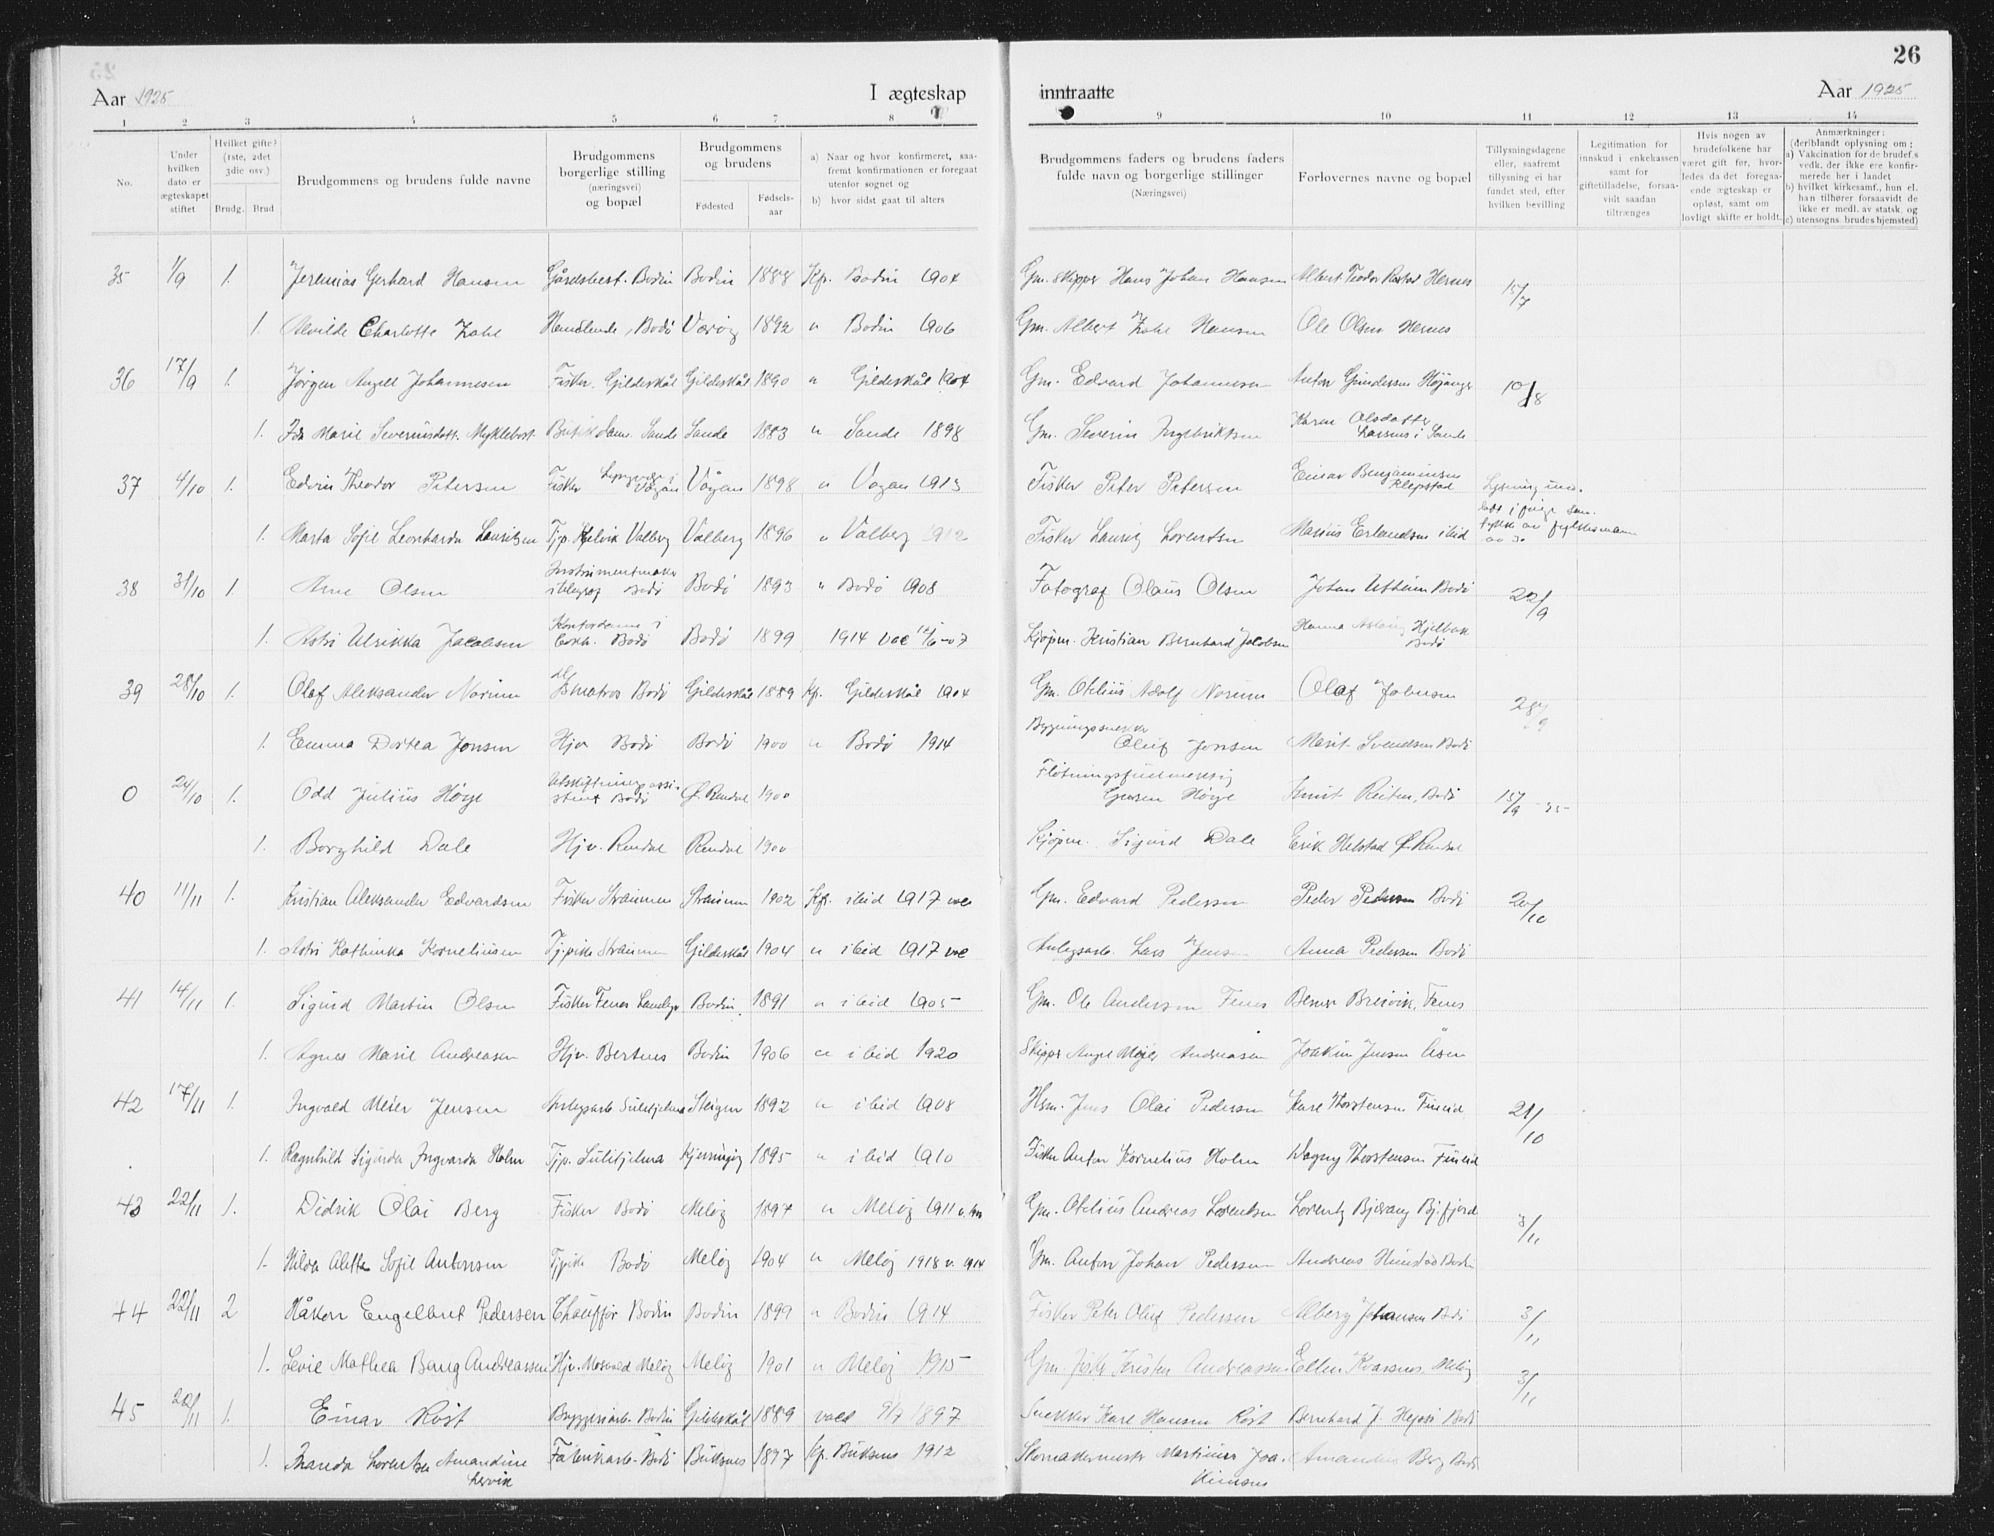 26
Aar 1925 I ægteskap inntraatte Aar 1925
1 2 3 4 5 6 7 8 9 10 11 12 13 14
No.
Under hvilken dato er ægteskapet stiftet
Hvilket gifte? (1ste, 2det 3die osv.)
Brudg. Brud
Brudgommens og brudens fulde navne
Brudgommens borgerlige stilling (næringsvei) og bopæl
Brudgommens og brudens
Fødested Fødsels-aar
a) Naar og hvor konfirmeret, saafremt konfirmationen er foregaat utenfor sognet og
b) hvor sidst gaat til alters
Brudgommens faders og brudens faders fulde navn og borgerlige stillinger (Næringsvei)
Forlovernes navne og bopæl
Tillysningsdagene eller, saafremt tillysning ei har fundet sted, efter hvilken bevilling
Legitimation for innskud i enkekassen samt for giftetilladelse, forsaavidt saadan tiltrænges
Hvis nogen av brudefolkene har været gift før, hvorledes da det foregaaende ægteskap er opløst, samt om lovligt skifte er holdt.
Anmærkninger: (deriblandt oplysning om: a) Vakcination for de brudef.s vedk. der ikke ere konfirmerede her i landet b) hvilket kirkesamf., hun el. han tilhører forsaavidt de ikke er medl. av statsk. og c) utensogns. brudes hjemsted)
35 1/9 1. Jeremias Gerhard Hansen Gårdsbest. Bodin Bodin 1888 Kf. Bodin 1904 Gm. Skipper Hans Johan Hansen Albert Teodor Hernes 15/7
1. Alvilde Charlotte Zahl Handlende, Bodø Værøy 1892 " Bodin 1906 Gm. Albert Zahl Hansen Ole Olsen Hernes
36 17/9 1. Jørgen Angell Johannesen Fisker. Gildeskål Gildeskål 1890 " Gildeskål 1904 Gm. Edvard Johannesen Anton Gundersen 10/8
1. Ida Marie Severinsdatt. Myklebost Sande Sande 1883 " Sande 1898 Gm. Severin Ingebriktsen Karen Olsdatter Larsnes i Sande
37 4/10 1. Edvin Theodor Petersen Fisker Vågan Vågan 1898 " Vågan 1913 Fisker Peter Petersen Einar Benjaminsen Klepstad
1. Marta Sofie Leonharda Lauritsen Tjp. Valberg Valberg 1896 " Valberg 1912 Fisker Lauritz Lorentsen Marius Erlandsen ibid
38 31/10 1. Arne Olsen Instrumentmaker Bodø Bodø 1893 " Bodø 1908 Fotograf Olaus Olsen Johan Bodø 22/9
1. Astri Ulrikka Jacobsen Kontordame i Bodø Bodø 1899 1914 Kjøpm. Kristian Bernhard Jakobsen Hanna Bodø
39 28/10 1. Olaf Aleksander Norum Bodø Gildeskål 1889 Kf. Gildeskål 1904 Gm. Otelius Adolf Norum Olaf Johnsen
1. Emma Dortea Jonsen Hjv Bodø Bodø 1900 " Bodø 1914 Oluf Jonsen Marit Svendsen Bodø
0 24/10 1. Odd Julius Høye Utskiftningsassistent Bodø Ø. Rendal 1900 Høye Knut Reiten, Bodø 15/9-25-
1. Borghild Dale Hjv. Rendal Rendal 1900 Kjøpm. Sigurd Dale Erik Helstad Ø. Rendal
40 11/11 1. Kristian Aleksander Edvardsen Fisker Straumen Straumen 1902 Kf. ibid 1917 Gm. Edvard Pedersen Peder Pedersen Bodø 20/10
1. Astri Kathinka Korneliusen Tj.pike Straumen Gildeskål 1904 " ibid 1917 Anlegsarb. Lars Jensen Anna Pedersen Bodø
41 14/11 1. Sigurd Martin Olsen Fisker Fenes Bodin 1891 " ibid 1905 Gm. Ole Andersen Fenes Breivik, Fenes
1. Agnes Marie Andreasen Hjv. Bertnes Bodin 1906 " ibid 1920 Skipper Meyer Andreasen Joakim Jensen Åsen
42 17/11 1. Ingvald Meier Jensen Anlegsarb Sulitjelma Steigen 1892 " ibid 1908 Jens Olai Pedersen Kare Thorstensen Fineid 21/10
1. Ragnhild Sigurda Ingvarda Holm Tjp. Sulitjelma Kjerringøy 1895 " ibid 1910 Fisker Anton Kornelius Holm Dagny Thorstensen Fineid
43 22/11 1. Didrik Olai Berg Fisker Bodø Meløy 1897 " Meløy 1911 Gm. Otelius Andreas Lorentsen Lorentz Bjerang Bjfjord 3/11
1. Hilda Alette Sofie Antonsen Tjpike Bodø Meløy 1904 " Meløy 1918 Gm. Anton Johan Pedersen Andreas Bodin
44 22/11 2 Håkon Engelbret Pedersen Chauffør Bodin Bodin 1899 " Bodin 1914 Fisker Peter Oluf Pedersen Alberg Johansen Bodø 3/11
1. Levie Mathea Bang Andreassen Hjv. Mosvold Meløy Meløy 1901 " Meløy 1915 Gm. Fisk. Kristen Andreassen Ellen Kvarsnes, Meløy 3/11
45 22/11 1. Einar Röst Bryggeriarb. Bodin Gildeskål 1889 1897 Snekker Karl Hansen Röst Bernhard J. Bodø
1. Lorentze Amandine Lervik Fabrikarb. Bodø Buksnes 1897 Kf. Buksnes 1912 Skomakermester Martinus Joakimsen Amandus Berg Bodø